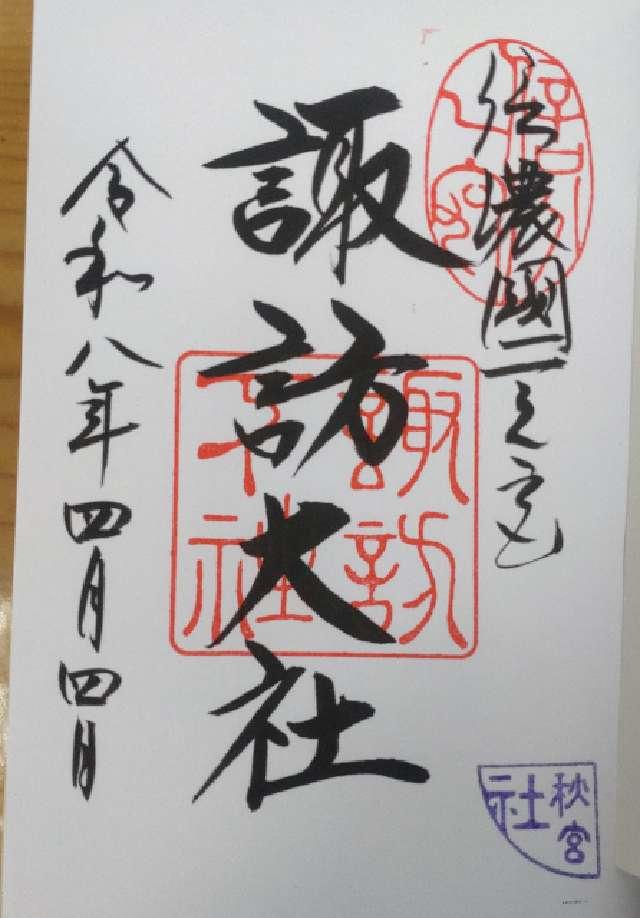 信濃國一之宮
諏訪大社
令和八年四月四日
諏訪大社
秋宮
社